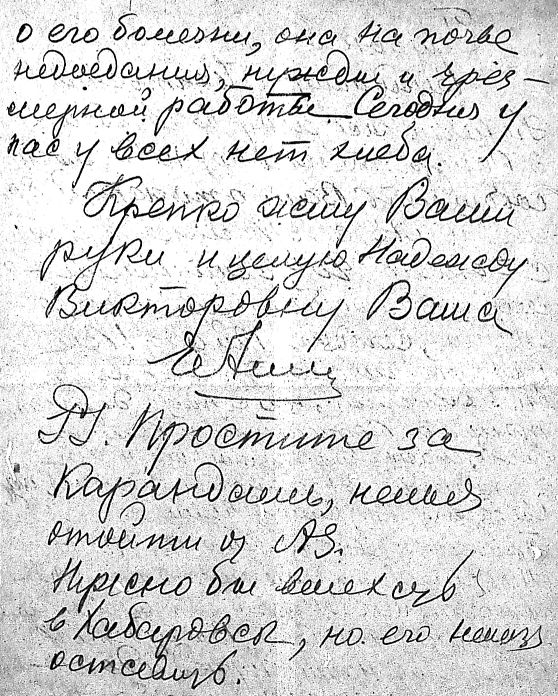 о его болезни, она на почве
недоедания, нужды и чрез-
мерной работы Сегодня у
нас у всех нет хлеба.
Крепко жму Ваши
руки и целую Надежду
Викторовну Ваша
PS. Простите за
карандашъ, нельзя
отойти от
Нужно бы выехать
в Хабаровск, но его нельзя
оставить.